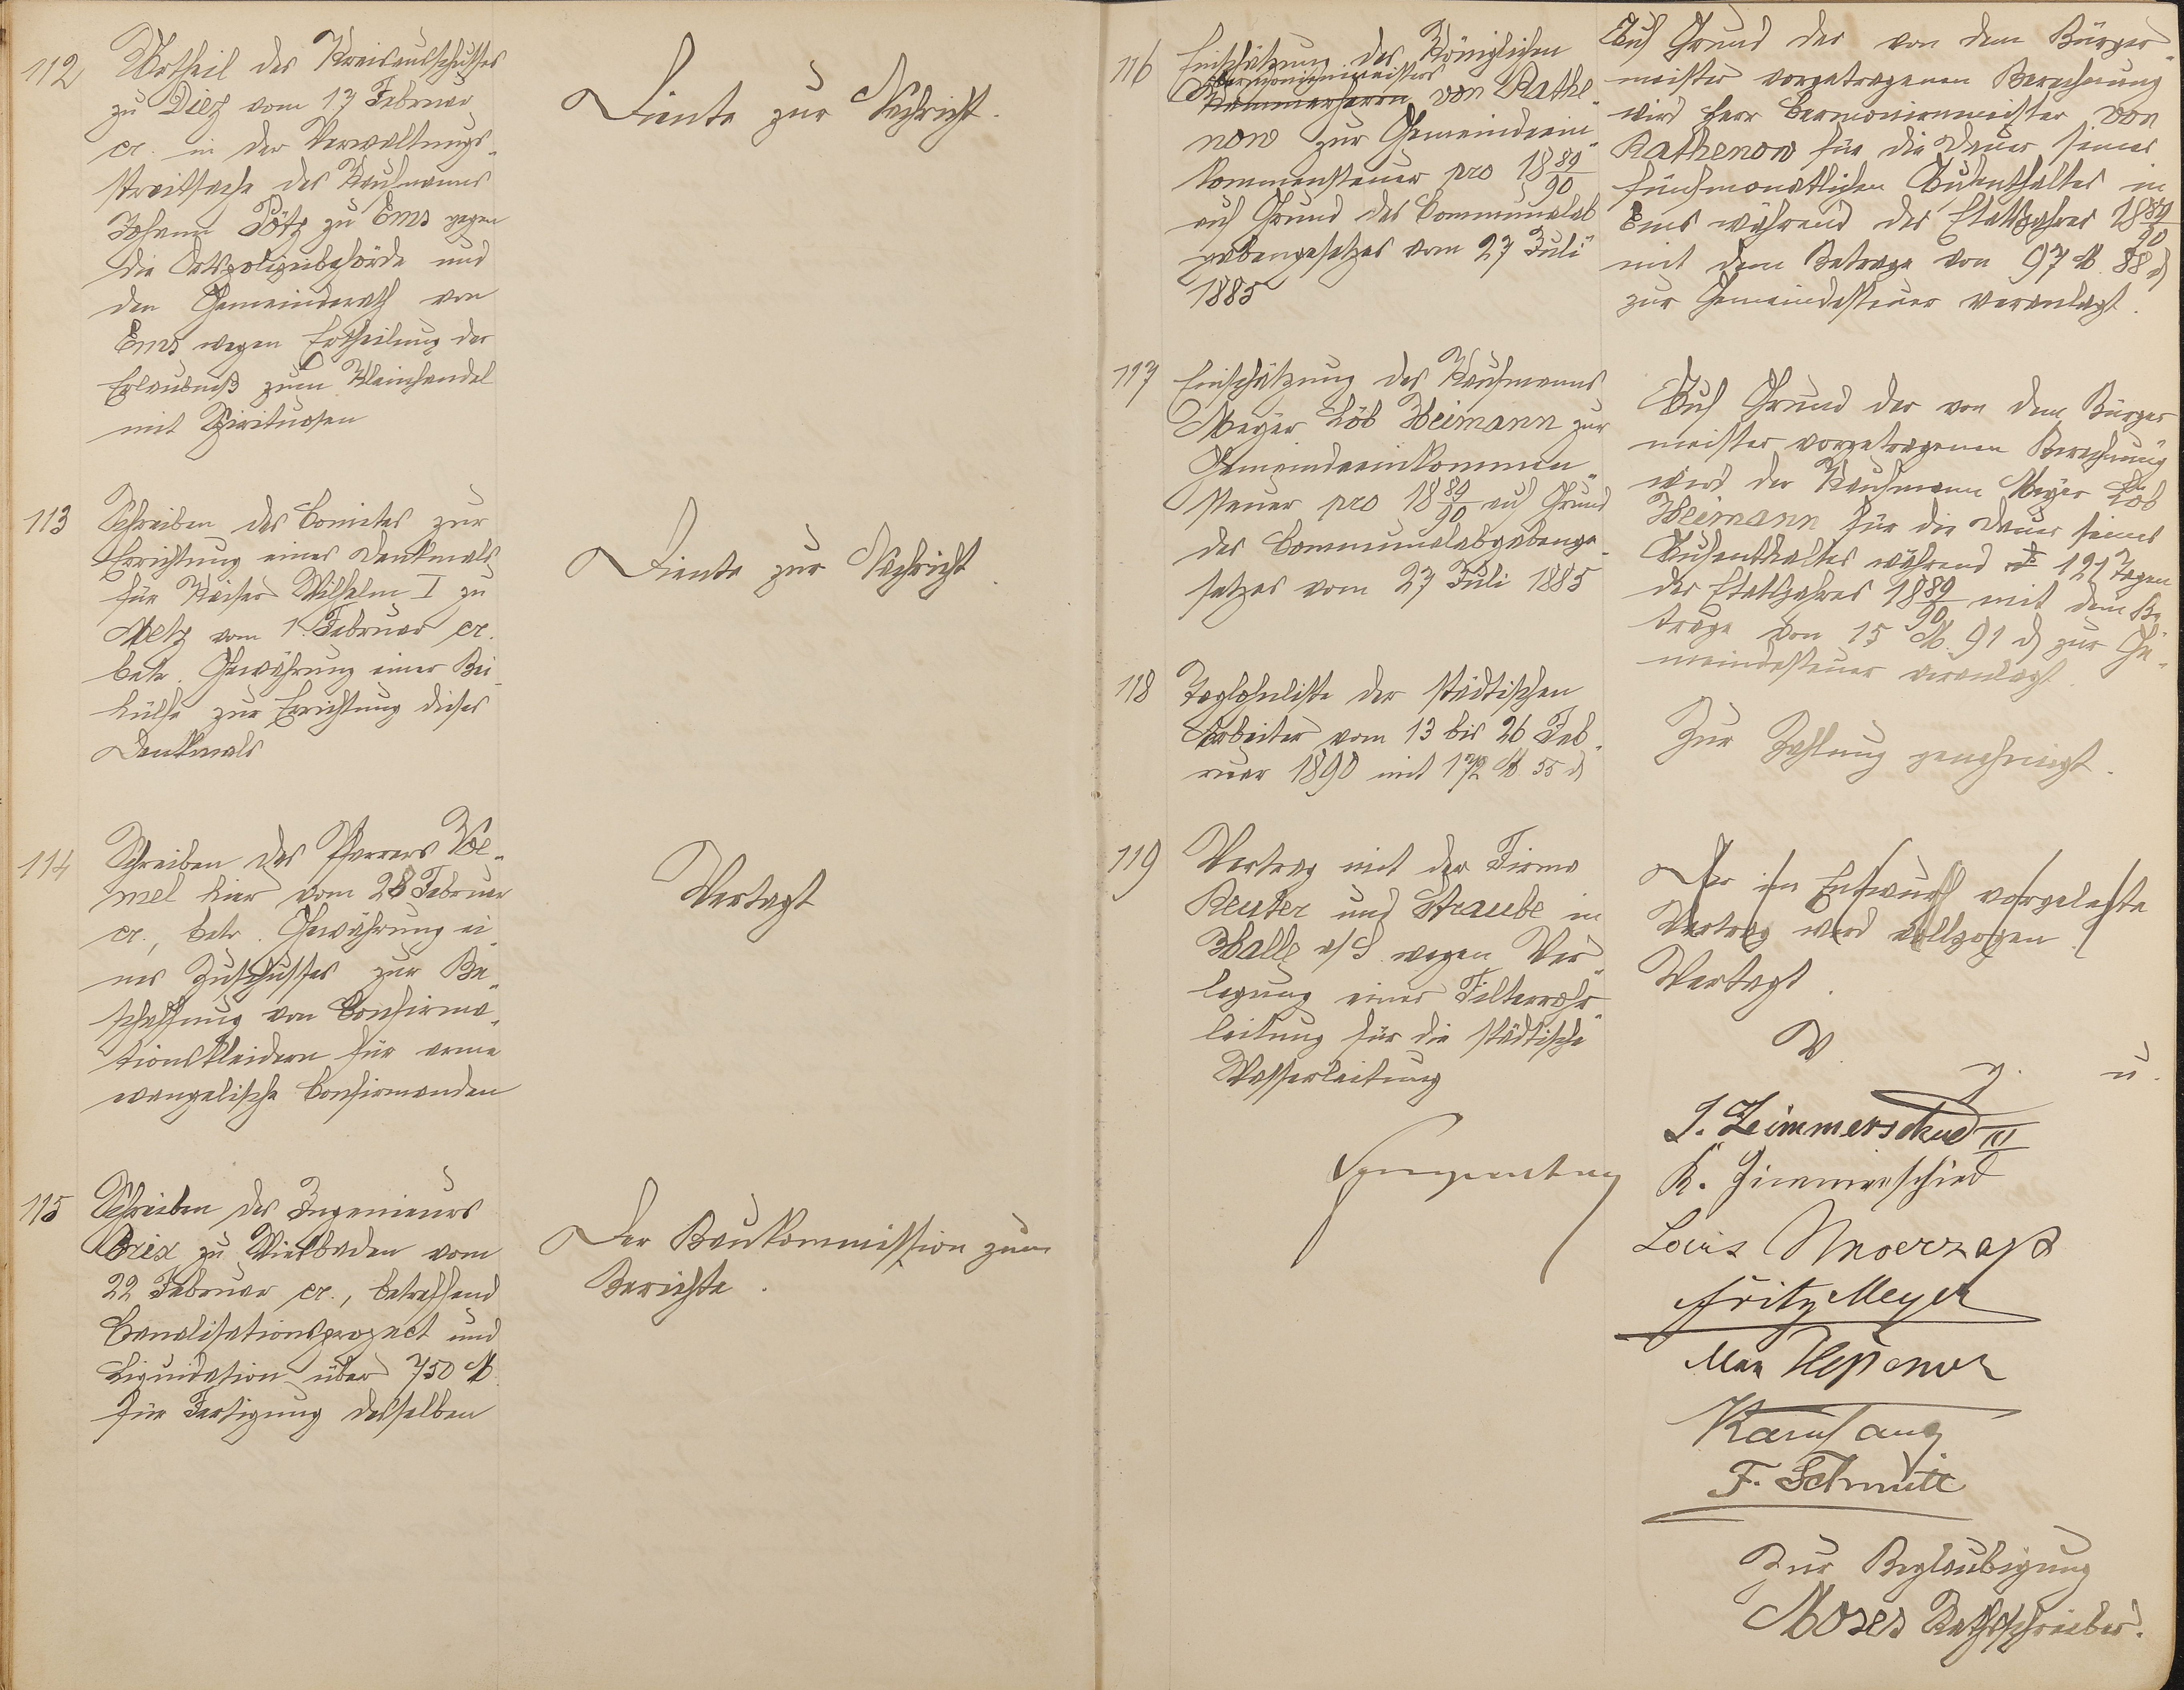 112
Urtheil des Kreisausschusses
zu Diez vom 17 Februar
cr. in der Verwaltungs-
streitsache des Kaufmanns
Johann Pötz zu Ems gegen
die Ortspolizeibehörde und
den Gemeinderath von
Ems wegen Ertheilung der
Erlaubniß zum Kleinhandel
mit Spirituosen
Diente zur Nachricht.
113
Schreiben des Comites zur
Errichtung eines Denkmals
für Kaiser Wilhelm I zu
Metz vom 1. Februar cr.
betr. Gewährung einer Bei-
hülfe zur Errichtung dieses
Denkmals
Diente zur Nachricht.
114
Schreiben des Pfarrers Vö-
mel hier vom 28 Februar
cr., betr. Gewährung ei-
nes Zuschusses zur Be-
schaffung von Confirma-
tionskleidern für arme
evangelische Confirmanden
Vertagt
115
Schreiben des Ingenieurs
Brix zu Wiesbaden vom
22 Februar cr., betreffend
Canalisationsproject und
Liquidation über 750 M.
für Fertigung desselben
Der Baukommission zum
Berichte.
116
Einschätzung des Königlichen
Ceremonienmeisters
Kammerherrn von Rathe-
now zur Gemeindeein-
kommensteuer pro 1889/90
auf Grund des Communalab-
gabengesetzes vom 27 Juli
1885
Auf Grund der von dem Bürger-
meister vorgetragenen Berechnung
wird Herr Ceremonienmeister von
Rathenow für die Dauer seines
fünfmonatlichen Aufenthaltes in
Ems während des Etatsjahres 1889/90
mit dem Betrage von 97 M. 88 d
zur Gemeindesteuer veranlagt.
117
Einschätzung des Kaufmanns
Meyer Löb Heimann zur
Gemeindeeinkommen-
steuer pro 1889/90 auf Grund
des Communalabgabenge-
setzes vom 27 Juli 1885
Auf Grund der von dem Bürger
meister vorgetragenen Berechnung
wird der Kaufmann Meyer Löb
Heimann für die Dauer seines
Aufenthaltes während 121 Tagen
des Etatsjahres 1889/90 mit dem Be-
trage von 15 M. 91 d zur Ge-
meindesteuer veranlagt.
118
Taglohnliste der städtischen
Arbeiter vom 13 bis 26 Feb-
ruar 1890 mit 172 M 55 d
Zur Zahlung genehmigt.
119
Vertrag mit der Firma
Reuter und Straube in
Halle a/S. wegen Ver-
legung einer Filterrohr-
leitung für die städtische
Wasserleitung
Der im Entwurf vorgelegte
Vertrag wird vollzogen.
Vertagt.
V. g. u.
J. Zimmerschied III
K. Zimmerschied
Louis
Fritz Meyer
Max
F. Schmitt
Zur Beglaubigung
Moses Rathsschreiber.